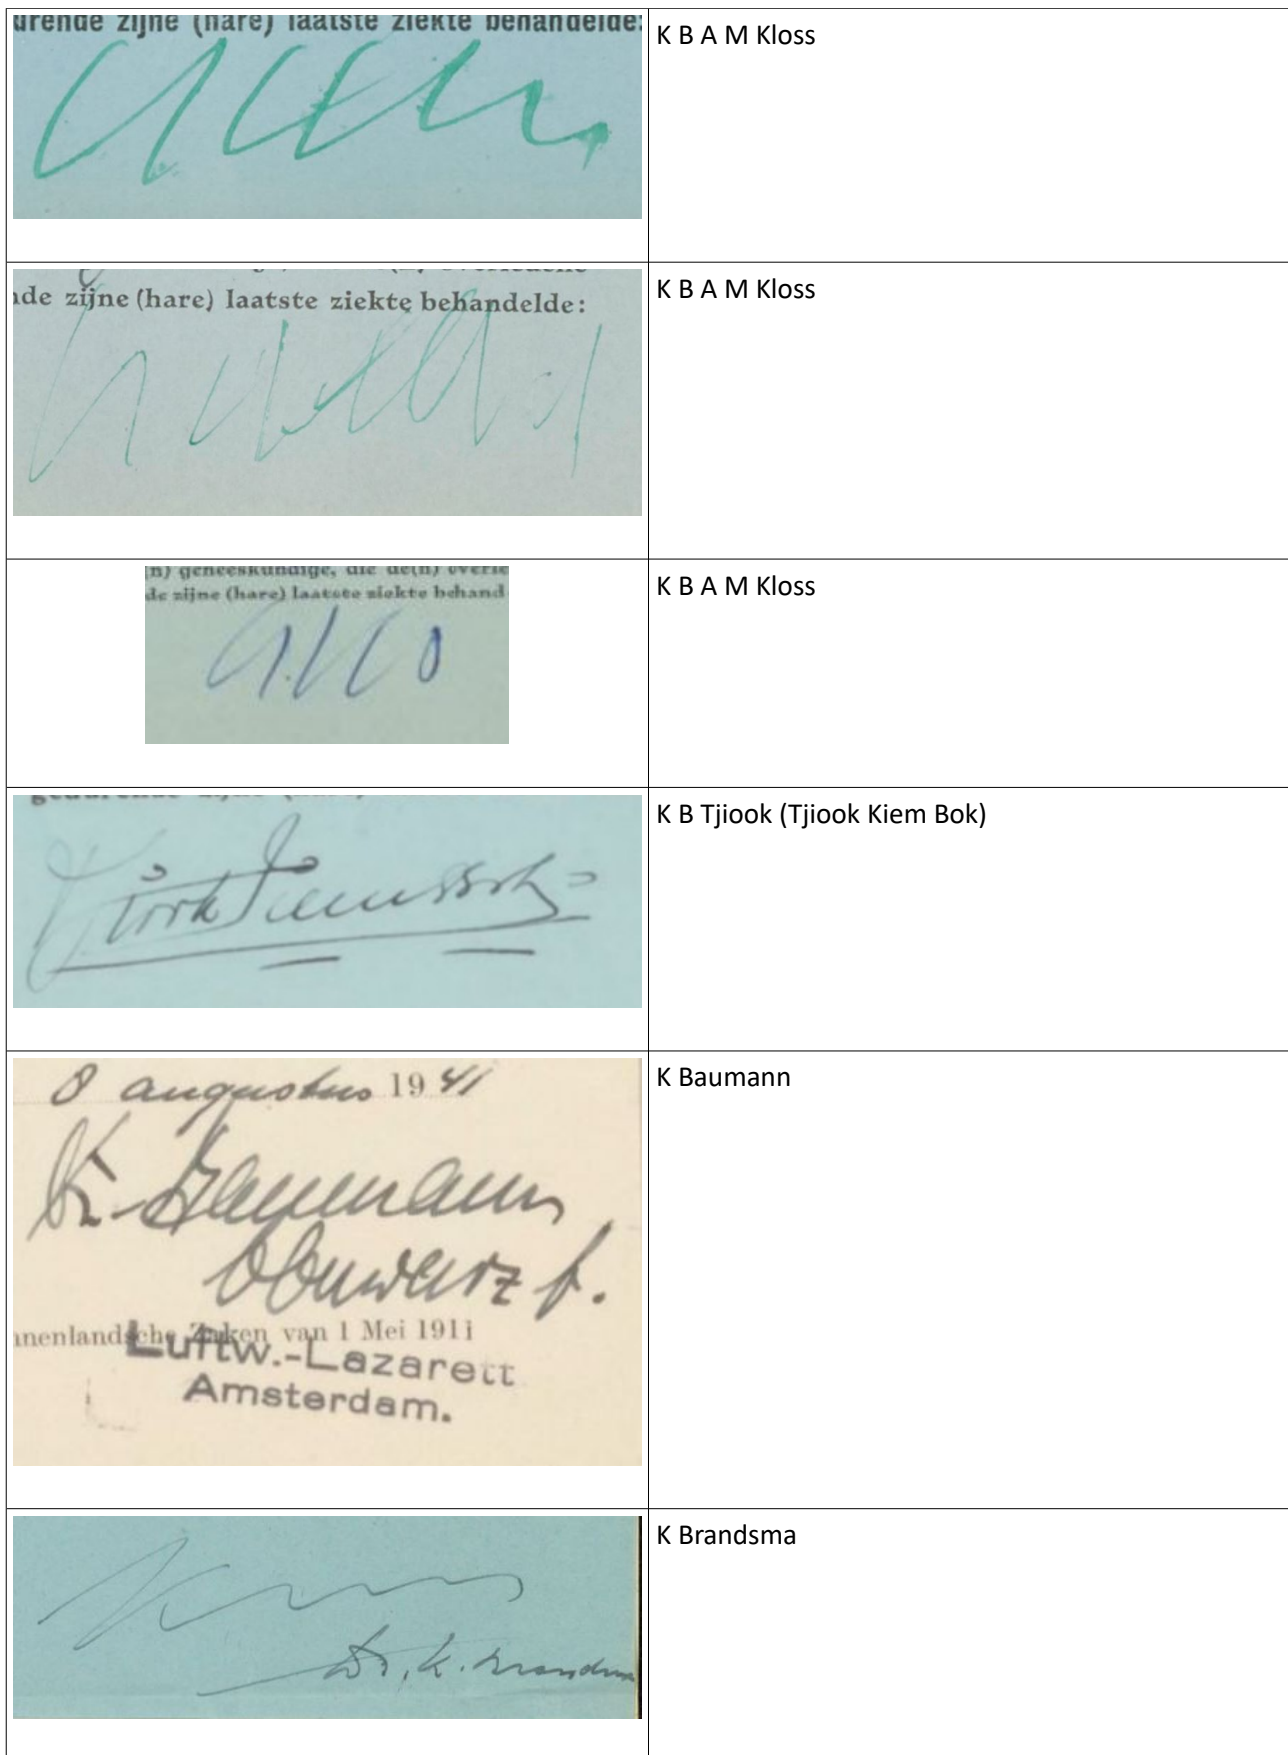 urende zijne (hare) laatste ziekte behandelde:
K B A M Kloss
de zijne (hare) laatste ziekte behandelde:
K B A M Kloss
(n) geneeskundige, die de(n) overle
de zijne (hare) laatste ziekte behand
K B A M Kloss
K B Tjiook (Tjiook Kiem Bok)
8 augustus 1941
K. Baumann
K Baumann
nnenlandsche Zaken van 1 Mei 1911
Luftw.-Lazarett
Amsterdam.
K Brandsma
Dr. K. Brandsma